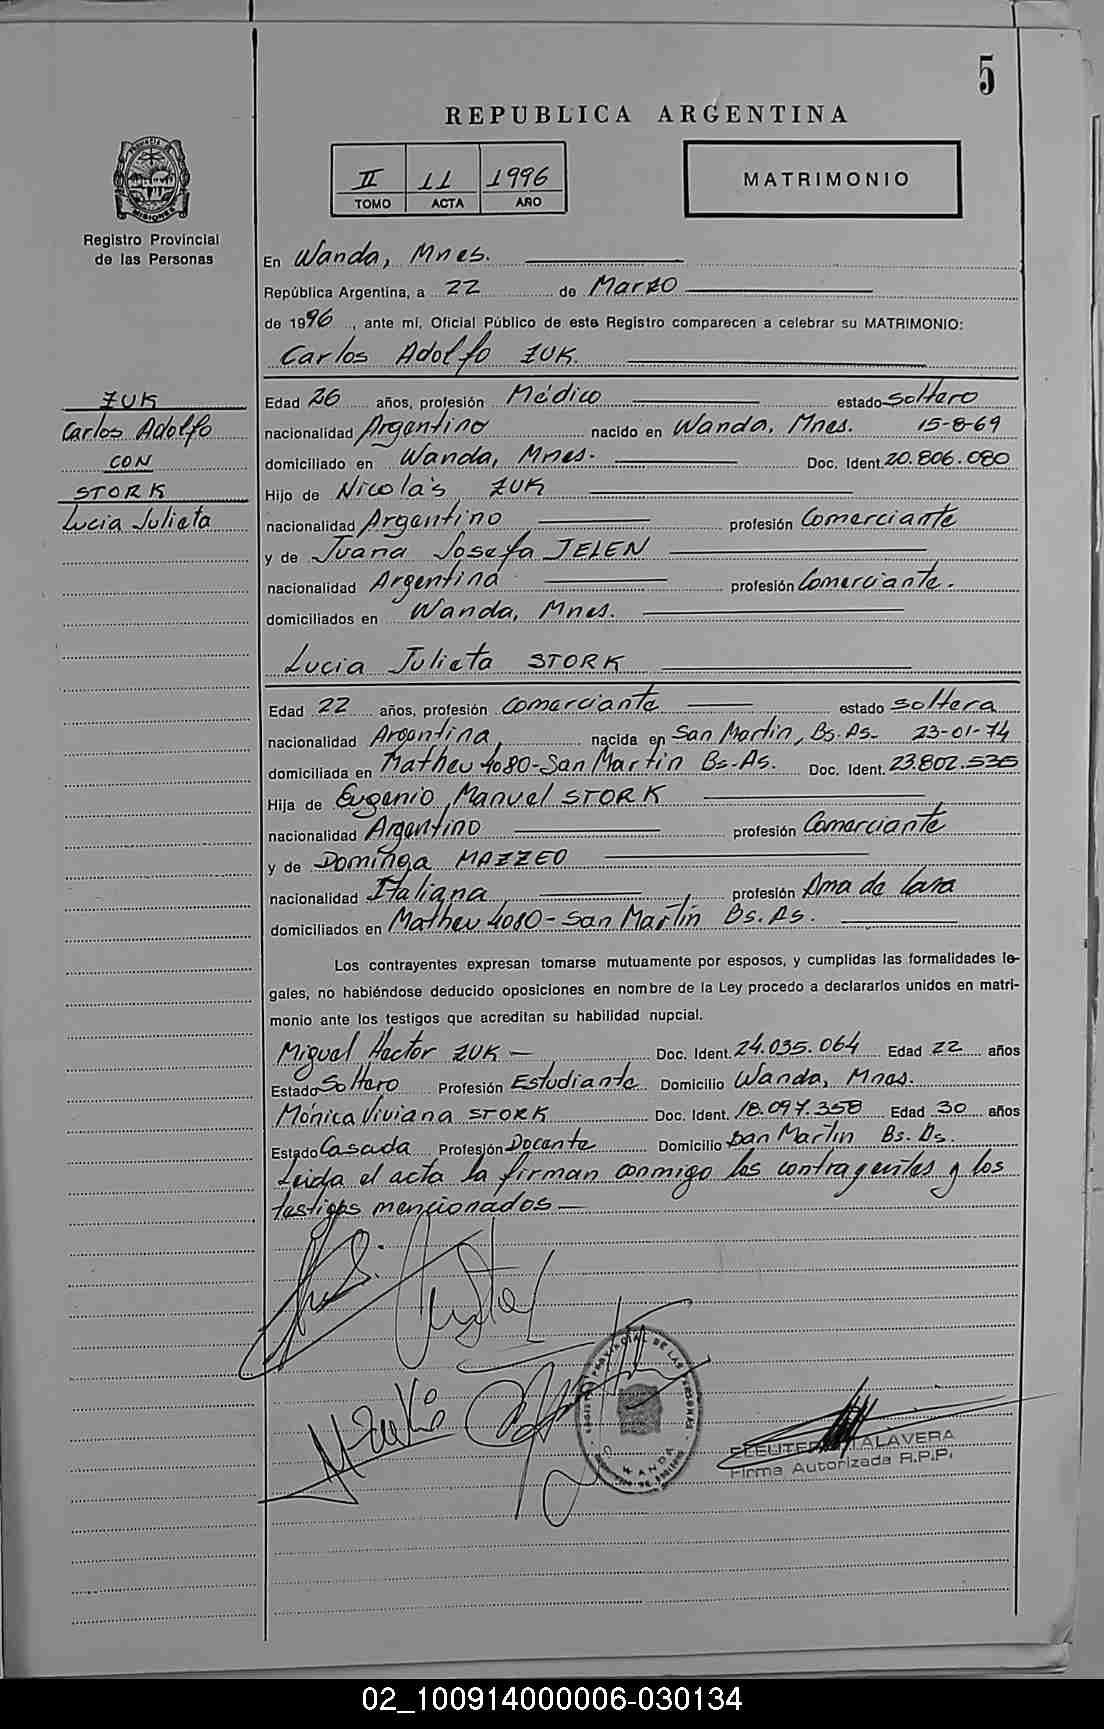 5
REPUBLICA ARGENTINA
II 11 1996
TOMO ACTA AÑO
MATRIMONIO
PROVINCIA DE
MISIONES
Registro Provincial
de las Personas
En Wanda, Mnes.
República Argentina, a 22 de Marzo
de 1996, ante mí, Oficial Público de este Registro comparecen a celebrar su MATRIMONIO:
Carlos Adolfo ZUK.
ZUK
Carlos Adolfo
CON
STORK
Lucia Julieta
Edad 26 años, profesión Médico estado soltero
nacionalidad Argentino nacido en Wanda, Mnes. 15-8-69
domiciliado en Wanda, Mnes. Doc. Ident. 20.806.080
Hijo de Nicolás ZUK
nacionalidad Argentino profesión Comerciante
y de Juana Josefa JELEN
nacionalidad Argentina profesión Comerciante.
domiciliados en Wanda, Mnes.
Lucia Julieta STORK
Edad 22 años, profesión Comerciante estado soltera
nacionalidad Argentina, nacida en San Martin, Bs. As. 23-01-74
domiciliada en Matheu 4080-San Martin Bs-As. Doc. Ident. 23.802.535
Hija de Eugenio Manuel STORK
nacionalidad Argentino profesión Comerciante
y de Dominga MAZZEO
nacionalidad Italiana profesión Ama de Casa
domiciliados en Matheu 4080-San Martin Bs. As.
Los contrayentes expresan tomarse mutuamente por esposos, y cumplidas las formalidades le-
gales, no habiéndose deducido oposiciones en nombre de la Ley procedo a declararlos unidos en matri-
monio ante los testigos que acreditan su habilidad nupcial.
Miguel Hector ZUK — Doc. Ident. 24.035.064 Edad 22 años
Estado Soltero Profesión Estudiante Domicilio Wanda, Mnes.
Mónica Viviana STORK Doc. Ident. 18.097.358 Edad 30 años
Estado Casada Profesión Docente Domicilio San Martin Bs. As.
Leida el acta la firman conmigo los contrayentes y los
testigos mencionados —
REGISTRO PROVINCIAL DE LAS PERSONAS
WANDA
ALAVERA
Firma Autorizada R.P.P.
02_100914000006-030134